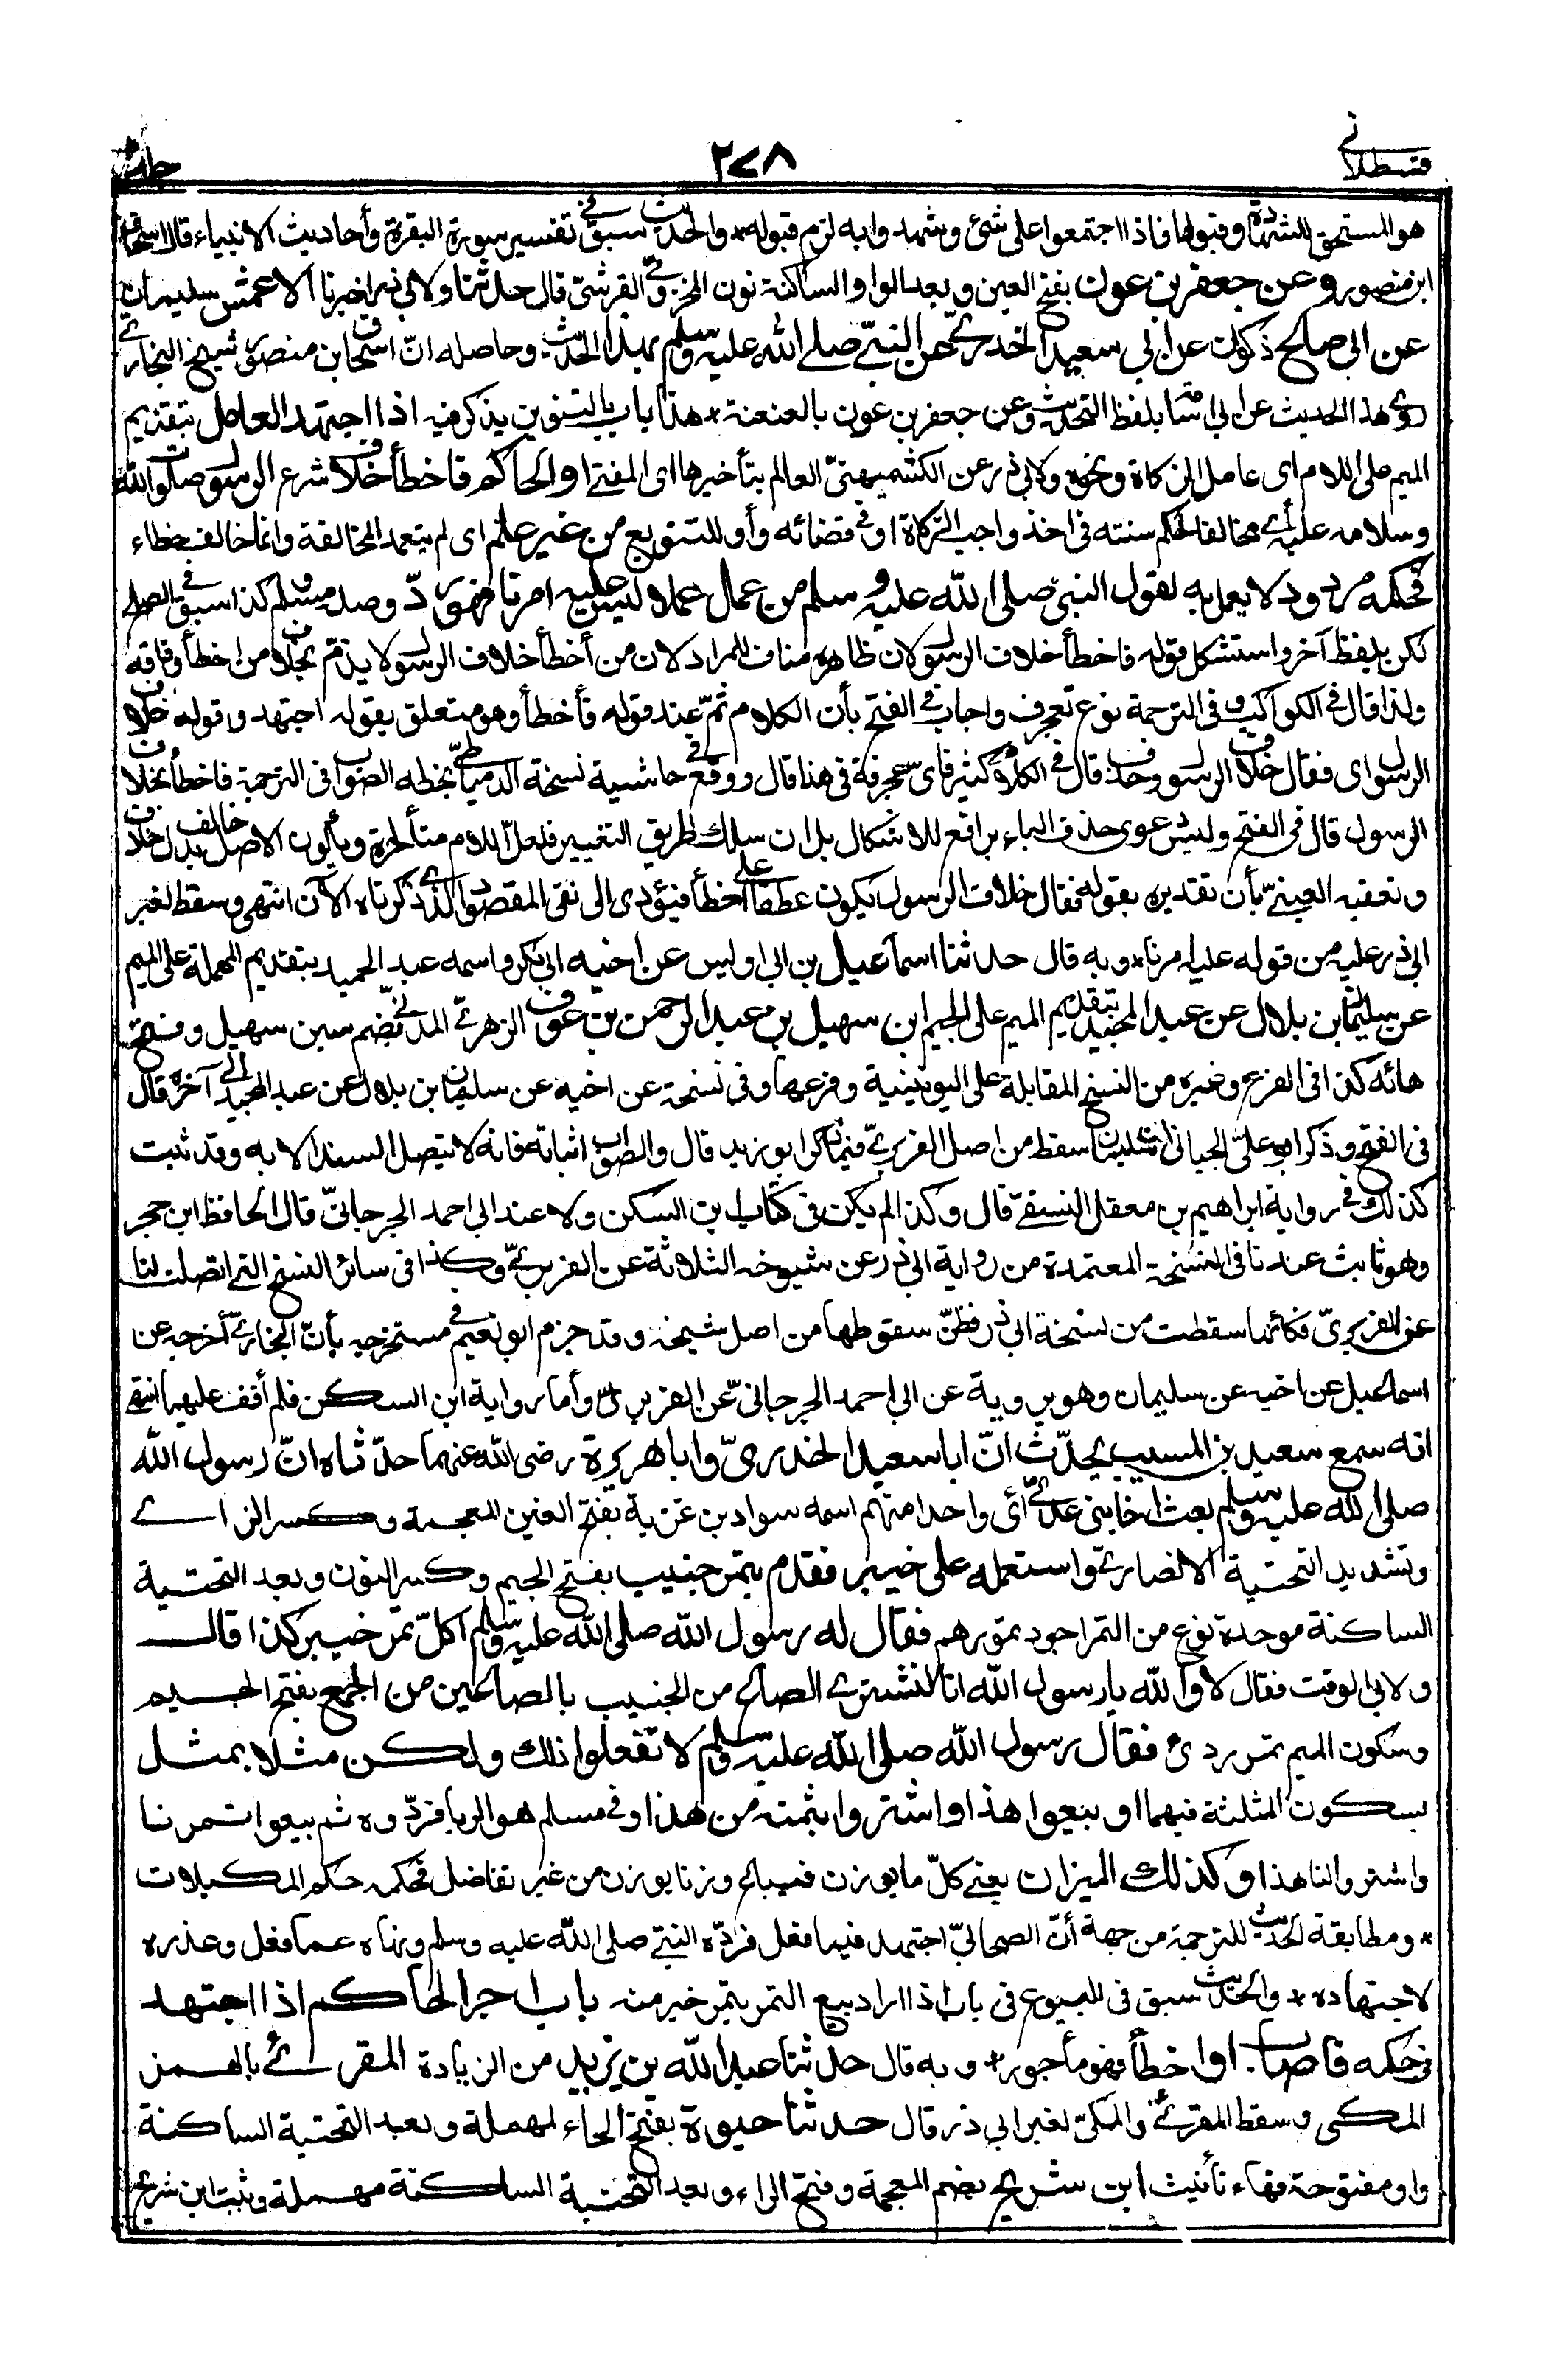 قسطلانی ٢٧٨
هو المستحق للشهادة وقبولها فاذا اجتمعوا على شئ وشهدوا به لزم قبوله * والحديث سبق في تفسير سورة البقرة وأحاديث الانبياء قال اسحاق
ابن منصور وعن جعفر بن عون بفتح العين وبعد الواو الساكنة نون المخزومىّ القرشىّ قال حدثنا ولابي ذر اخبرنا الاعمش سليمان
عن ابى صالح ذكوان عن ابي سعيد الخدرىّ عن النبىّ صلى الله عليه وسلم بهذا الحديث وحاصله انّ اسحاق ابن منصور شيخ البخارى
روى هذا الحديث عن ابى اسامة بلفظ التحديث وعن جعفر بن عون بالعنعنة * هذا باب بالتنوين يذكر فيه اذا اجتهد العامل بتقديم
الميم على اللام اى عامل الزكاة ونحوه ولابي ذر عن الكشميهنىّ العالم بتأخيرها اى المفتى او الحاكم فاخطأ خلاف شرع الرسول صلوات الله
وسلامه عليه أى مخالفا لحكم سنته فى اخذ واجب الزكاة او فى قضائه وأو للتنويع من غير علم اى لم يتعمد المخالفة وانما خالف خطاء
فحكمه مردود لا يعمل به لقول النبي صلى الله عليه وسلم من عمل عملا ليس عليه امرنا فهو ردّ وصله مسلم كذا سبق فى الصلح
لكن بلفظ آخر واستشكل قوله فاخطأ خلاف الرسول لان ظاهره مناف للمراد لان من أخطأ خلاف الرسول لا يذمّ بخلاف من اخطأ وفاقه
ولذا قال فى الكواكب وفى الترجمة نوع تعجرف واجاب فى الفتح بأن الكلام تمّ عند قوله فأخطأ وهو متعلق بقوله اجتهد وقوله خلاف
الرسول اى فقال خلاف الرسول وحذف قال فى الكلام كثير فاى عجرفة فى هذا قال ووقع فى حاشية نسخة الدمياطىّ بخطه الصواب فى الترجمة فاخطأ بخلاف
الرسول قال فى الفتح وليس دعوى حذف الباء برافع للاشكال بل ان سلك طريق التغيير فلعل اللام متأخرة ويكون الاصل خالف بدل خلاف
وتعقبه العينىّ بأن تقديره بقوله فقال خلاف الرسول يكون عطفا على اخطأ فيؤدى الى نفى المقصود الذى ذكرناه الآن انتهى وسقط لغير
ابى ذر عليه من قوله عليه امرنا * وبه قال حدثنا اسماعيل بن ابى اويس عن اخيه ابى بكر واسمه عبد الحميد بتقديم المهملة على الميم
عن سليمان بن بلال عن عبد المجيد بتقديم الميم على الجيم ابن سهيل بن عبد الرحمن بن عوف الزهرىّ المدنىّ بضم سين سهيل وفتح
هائه كذا فى الفرع وغيره من النسخ المقابلة على اليونينية وفرعها وفى نسخة عن اخيه عن سليمان بن بلال عن عبد المجيد الى آخره قال
فى الفتح وذكر ابو علىّ الجيانى انّ سليمان سقط من اصل الفربرىّ فيما ذكر ابو زيد قال والصواب اثباته فانه لا يتصل السند الا به وقد ثبت
كذلك فى رواية ابراهيم بن معقل النسفىّ قال وكذا لم يكن فى كتاب ابن السكن ولا عند ابى احمد الجرجانىّ قال الحافظ ابن حجر
وهو ثابت عندنا فى النسخة المعتمدة من رواية ابى ذر عن شيوخه الثلاثة عن الفربرىّ وكذا فى سائر النسخ التى اتصلت لنا
عن الفربرىّ فكأنها سقطت من نسخة ابى زيد فظنّ سقوطها من اصل شيخه وقد جزم ابو نعيم فى مستخرجه بأنّ البخارىّ أخرجه عن
اسماعيل عن اخيه عن سليمان وهو يرويه عن ابى احمد الجرجانىّ عن الفربرىّ وأما رواية ابن السكن فلم أقف عليها انتهى
انه سمع سعيد بن المسيب يحدّث انّ ابا سعيد الخدرىّ وابا هريرة رضى الله عنهما حدّثاه انّ رسول الله
صلى الله عليه وسلم بعث اخا بنى عدىّ أى واحدا منهم اسمه سواد بن غزية بفتح الغين المعجمة وكسر الزاى
وتشديد التحتية الانصارىّ واستعمله على خيبر فقدم بتمر جنيب بفتح الجيم وكسر النون وبعد التحتية
الساكنة موحدة نوع من التمر اجود تمورهم فقال له رسول الله صلى الله عليه وسلم اكلّ تمر خيبر كذا قال
ولابى الوقت فقال لا والله يا رسول الله انا لنشترى الصاع من الجنيب بالصاعين من الجمع بفتح الجيم
وسكون الميم تمر ردىء فقال رسول الله صلى الله عليه وسلم لا تفعلوا ذلك ولكن مثلا بمثل
بسكون المثلثة فيهما او بيعوا هذا واشتروا بثمنه من هذا وفى مسلم هو الربا فردّوه ثم بيعوا تمرنا
واشتروا لنا هذا وكذلك الميزان يعنى كلّ ما يوزن فيباع وزنا بوزن من غير تفاضل فحكمه حكم المكيلات
* ومطابقة الحديث للترجمة من جهة أنّ الصحابىّ اجتهد فيما فعل فردّه النبىّ صلى الله عليه وسلم ونهاه عما فعل وعذره
لاجتهاده * والحديث سبق فى البيوع فى باب اذا اراد بيع التمر بتمر خير منه باب اجر الحاكم اذا اجتهد
فى حكمه فاصاب او اخطأ فهو مأجور * وبه قال حدثنا عبد الله بن يزيد من الزيادة المقرئ بالهمز
المكى وسقط المقرئ والمكىّ لغير ابى ذر قال حدثنا حيوة بفتح الحاء المهملة وبعد التحتية الساكنة
واو مفتوحة فهاء تأنيث ابن شريح بضم المعجمة وفتح الراء وبعد التحتية الساكنة مهملة وثبت ابن شريح